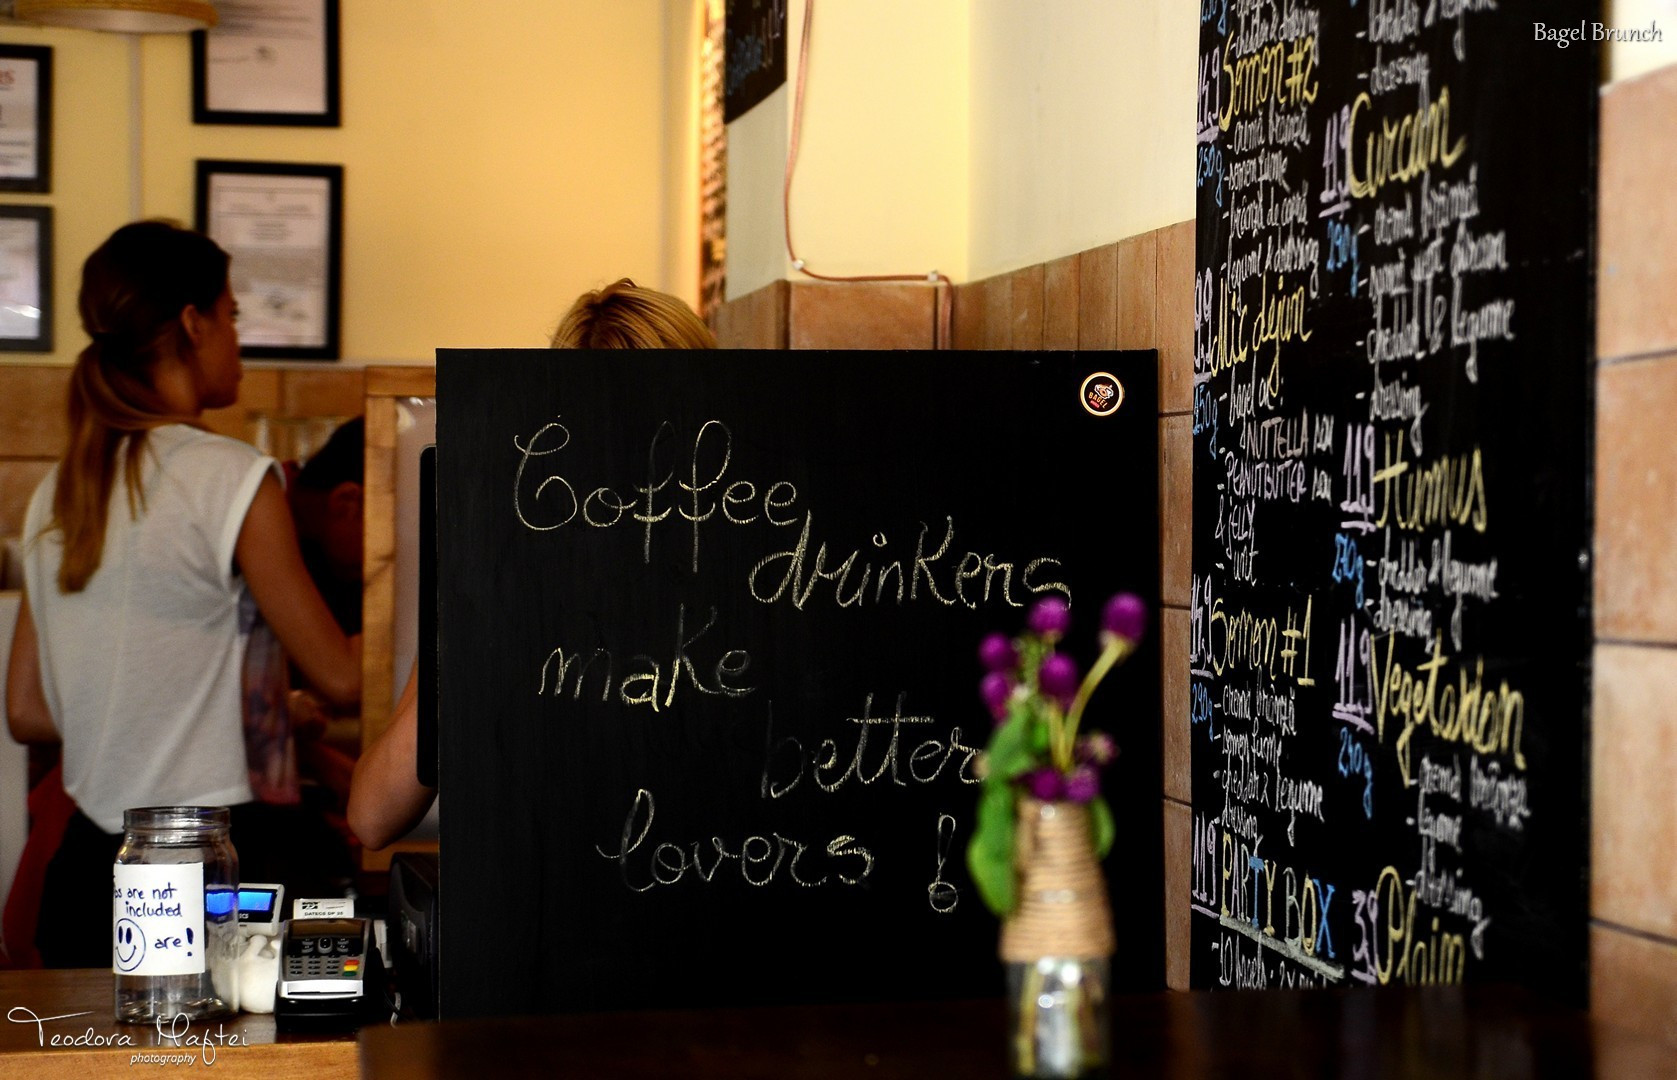 Bagel Brunch
Coffee
drinkers
make
better
lovers!
BAGEL
are not
included
are!
DATECS DP 25
Teodora Maftei
photography
dressing
14,9 Somon #2
250g
- cremă brânză
- somon fume
- legume & dressing
9,9 Mic dejun
250g
- bagel cu
NUTTELLA sau
- PEANUTBUTTER sau
& JELLY
14,9 Somon #1
290g
- cremă brânză
- somon fume
- cheddar & legume
- dressing
11,9 PARTY BOX
- 10 bagels
- dressing
11,9 Curcan
290g
- cremă brânză
- cheddar & legume
- dressing
11,9 Humus
270g
- cheddar & legume
- dressing
11,9 Vegetarian
240g
- cremă brânză
- legume
- dressing
3,9 Plain